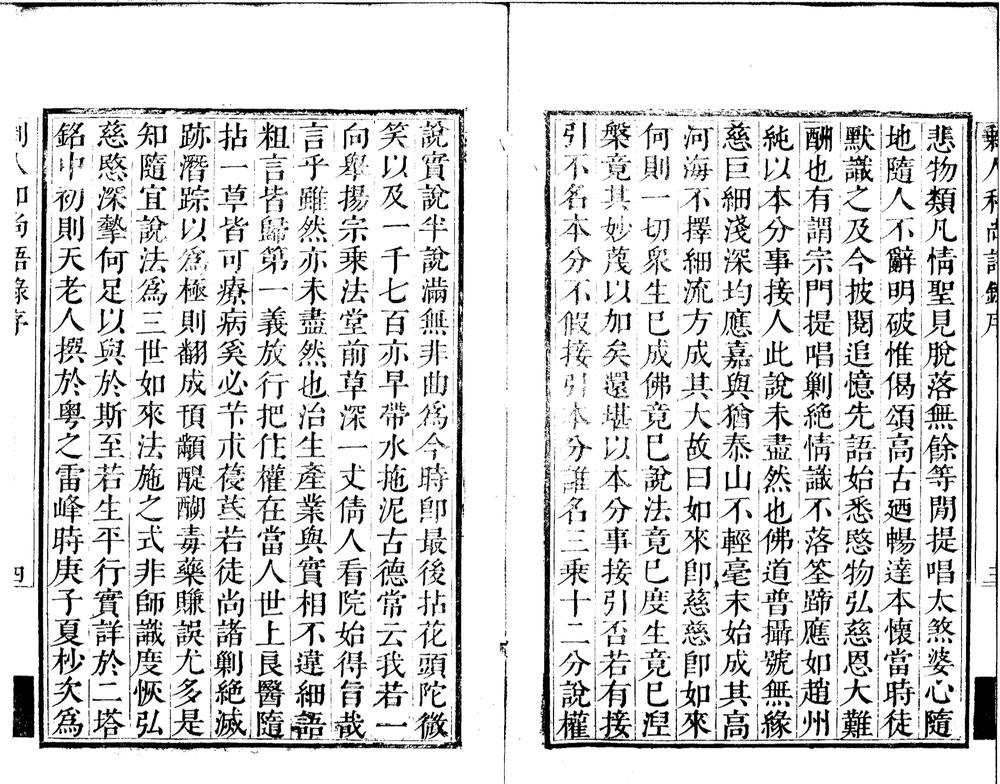 悲物類凡情聖見脫落無餘等閒提唱太煞婆心隨
地隨人不辭明破惟偈頌高古廼暢達本懷當時徒
默識之及今披閱追憶先語始悉愍物弘慈恩大難
酬也有謂宗門提唱剿絕情識不落筌蹄應如趙州
純以本分事接人此說未盡然也佛道普攝號無緣
慈巨細淺深均應嘉與猶泰山不輕毫末始成其高
河海不擇細流方成其大故曰如來卽慈慈卽如來
何則一切衆生已成佛竟已說法竟已度生竟已湼
槃竟其妙蔑以加矣還堪以本分事接引否若有接
引不名本分不假接引本分誰名三乘十二分說權
三
說實說半說滿無非曲爲今時卽最後拈花頭陀微
笑以及一千七百亦早帶水拖泥古德常云我若一
向舉揚宗乘法堂前草深一丈倩人看院始得旨哉
言乎雖然亦未盡然也治生產業與實相不違細語
粗言皆歸第一義放行把住權在當人世上良醫隨
拈一草皆可療病奚必苄朮葠芪若徒尚諸剿絕滅
跡潛踪以爲極則翻成頂顖醍醐毒藥賺誤尤多是
知隨宜說法爲三世如來法施之式非師識度恢弘
慈愍深摯何足以與於斯至若生平行實詳於二塔
銘中初則天老人撰於粵之雷峰時庚子夏杪次爲
人和尚語錄序
四